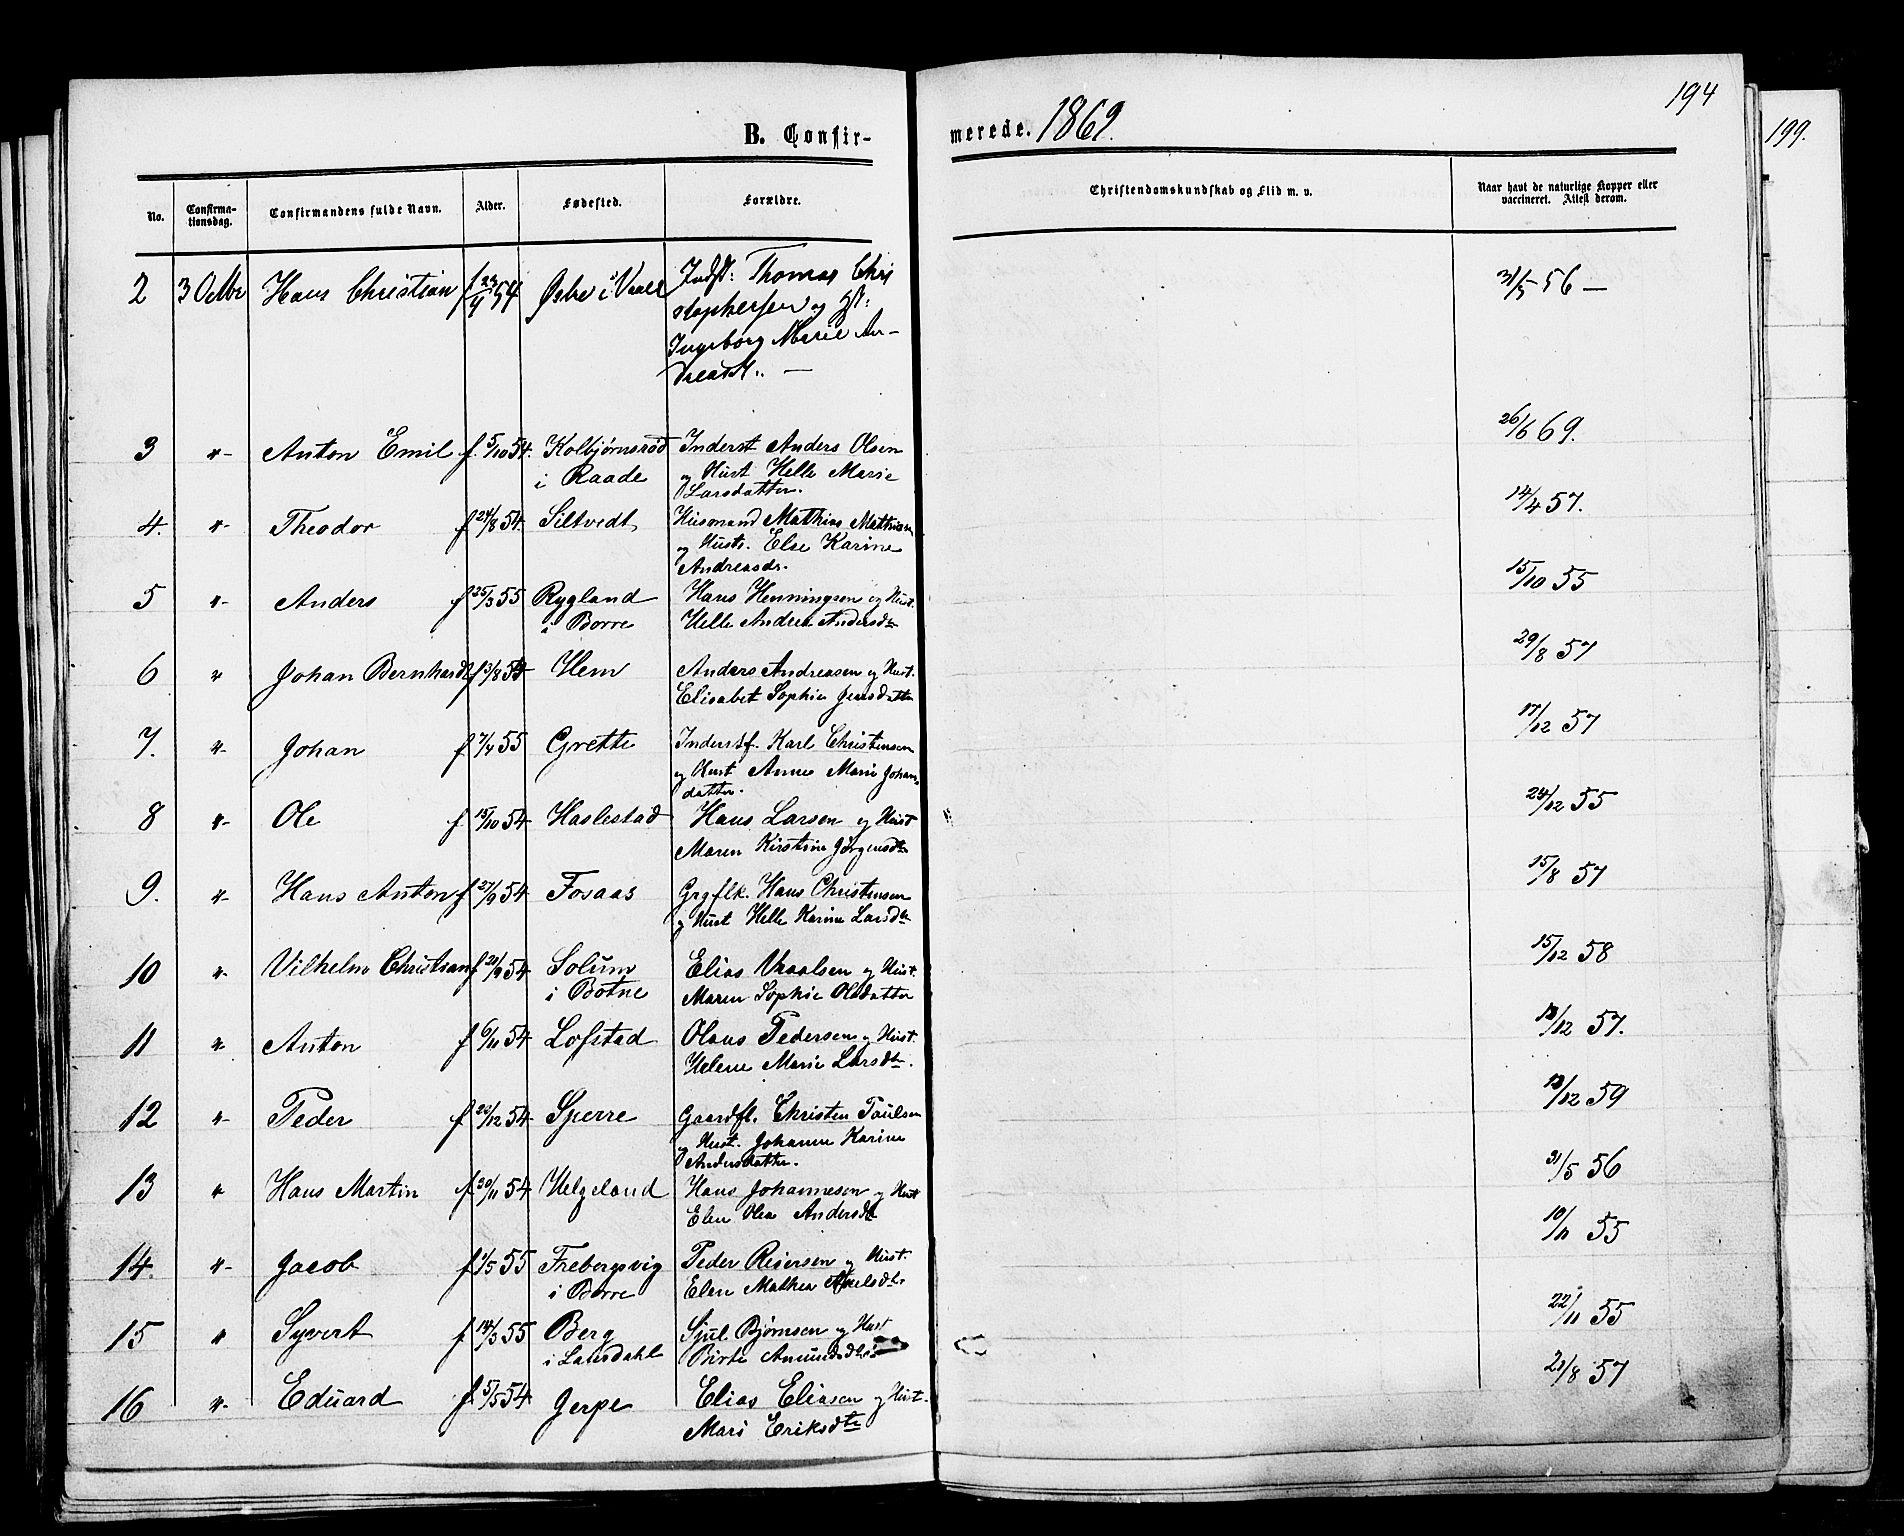 194
199.
B. Confir-
merede. 1869.
No.
Confirma-
tionsdag.
Confirmandens fulde Navn.
Alder.
Fødested.
Forældre.
Christendomskundskab og Flid m. v.
Naar havt de naturlige Kopper eller
vaccineret. Attest derom.
2 3 Octbr Hans Christian f 23/4 54 Østre i Vaale Indst: Thomas Chri
stophersen og Hst:
Ingeborg Marie An-
dreasd. —
31/5 56 —
3 "- Anton Emil f. 5/10 54. Kolbjørnsrød Inderst Anders Olsen
i Raade og Hust Helle Marie
Larsdatter.
26/6 69.
4. "- Theodor f 24/8 54. Siltvedt Husmand Mathias Mathisen
og Hustr. Else Karine
Andreasdr.
14/4 57.
5 "- Anders f 25/3 55 Rygland Hans Henningsen og Hust.
i Borre Helle Andrea Andersdtr
15/10 55
6 " Johan Bernhard f 13/8 54 Hem Anders Andreasen og Hust.
Elisabet Sophie Jensdatter
29/8 57
7. "- Johan f 7/4 55 Grette Indersf. Karl Christensen
og Hust Anne Marie Johan-
datter.
17/12 57
8 "- Ole f. 15/10 54 Haslestad Hans Larsen og Hust
Maren Kirstine Jørgensdtr
24/12 55
9. "- Hans Anton f 27/9 54 Fosaas Grgflk. Hans Christensen
og Hust Helle Karine Larsdtr
15/8 57
10 "- Vilhelm Christian f 21/9 54 Solum Elias Vraalsen og Hust.
i Botne Maren Sophie Olsdatter
15/12 58
11 " Anton f 6/11 54 Lofstad Olaus Pedersen og Hust.
Helene Marie Larsdtr.
13/12 57.
12 "- Peder f 22/12 54 Sperre Gaardfl. Christen Paulsen
og Hust. Johanne Karine
Andersdatter.
13/12 59
13 " Hans Martin f. 20/11 54 Helgeland Hans Johannesen og Hust
Elen Olea Andersdt
31/5 56
14. "- Jacob f 1/5 55 Frebergsvig Peder Reiersen og Hust.
i Borre Elen Mathea Axelsdtr
10/11 55
15 " Syvert f 14/3 55 Berg Sjul Bjørnsen og Hust
i Laurdahl Birte Amundsdtr
22/11 55
16 "- Eduard f 5/5 54 Jerpe Elias Eliasen og Hust.
Mari Eriksdtr
21/8 57